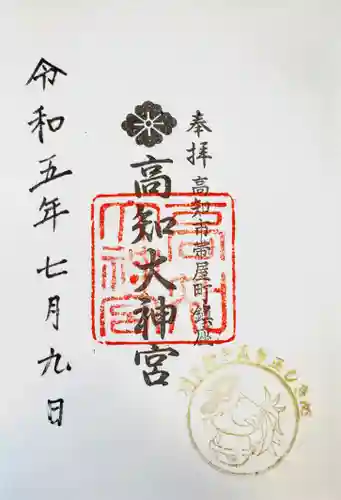 奉拝
高知市帯屋町鎮座
高知大神宮
令和五年七月九日